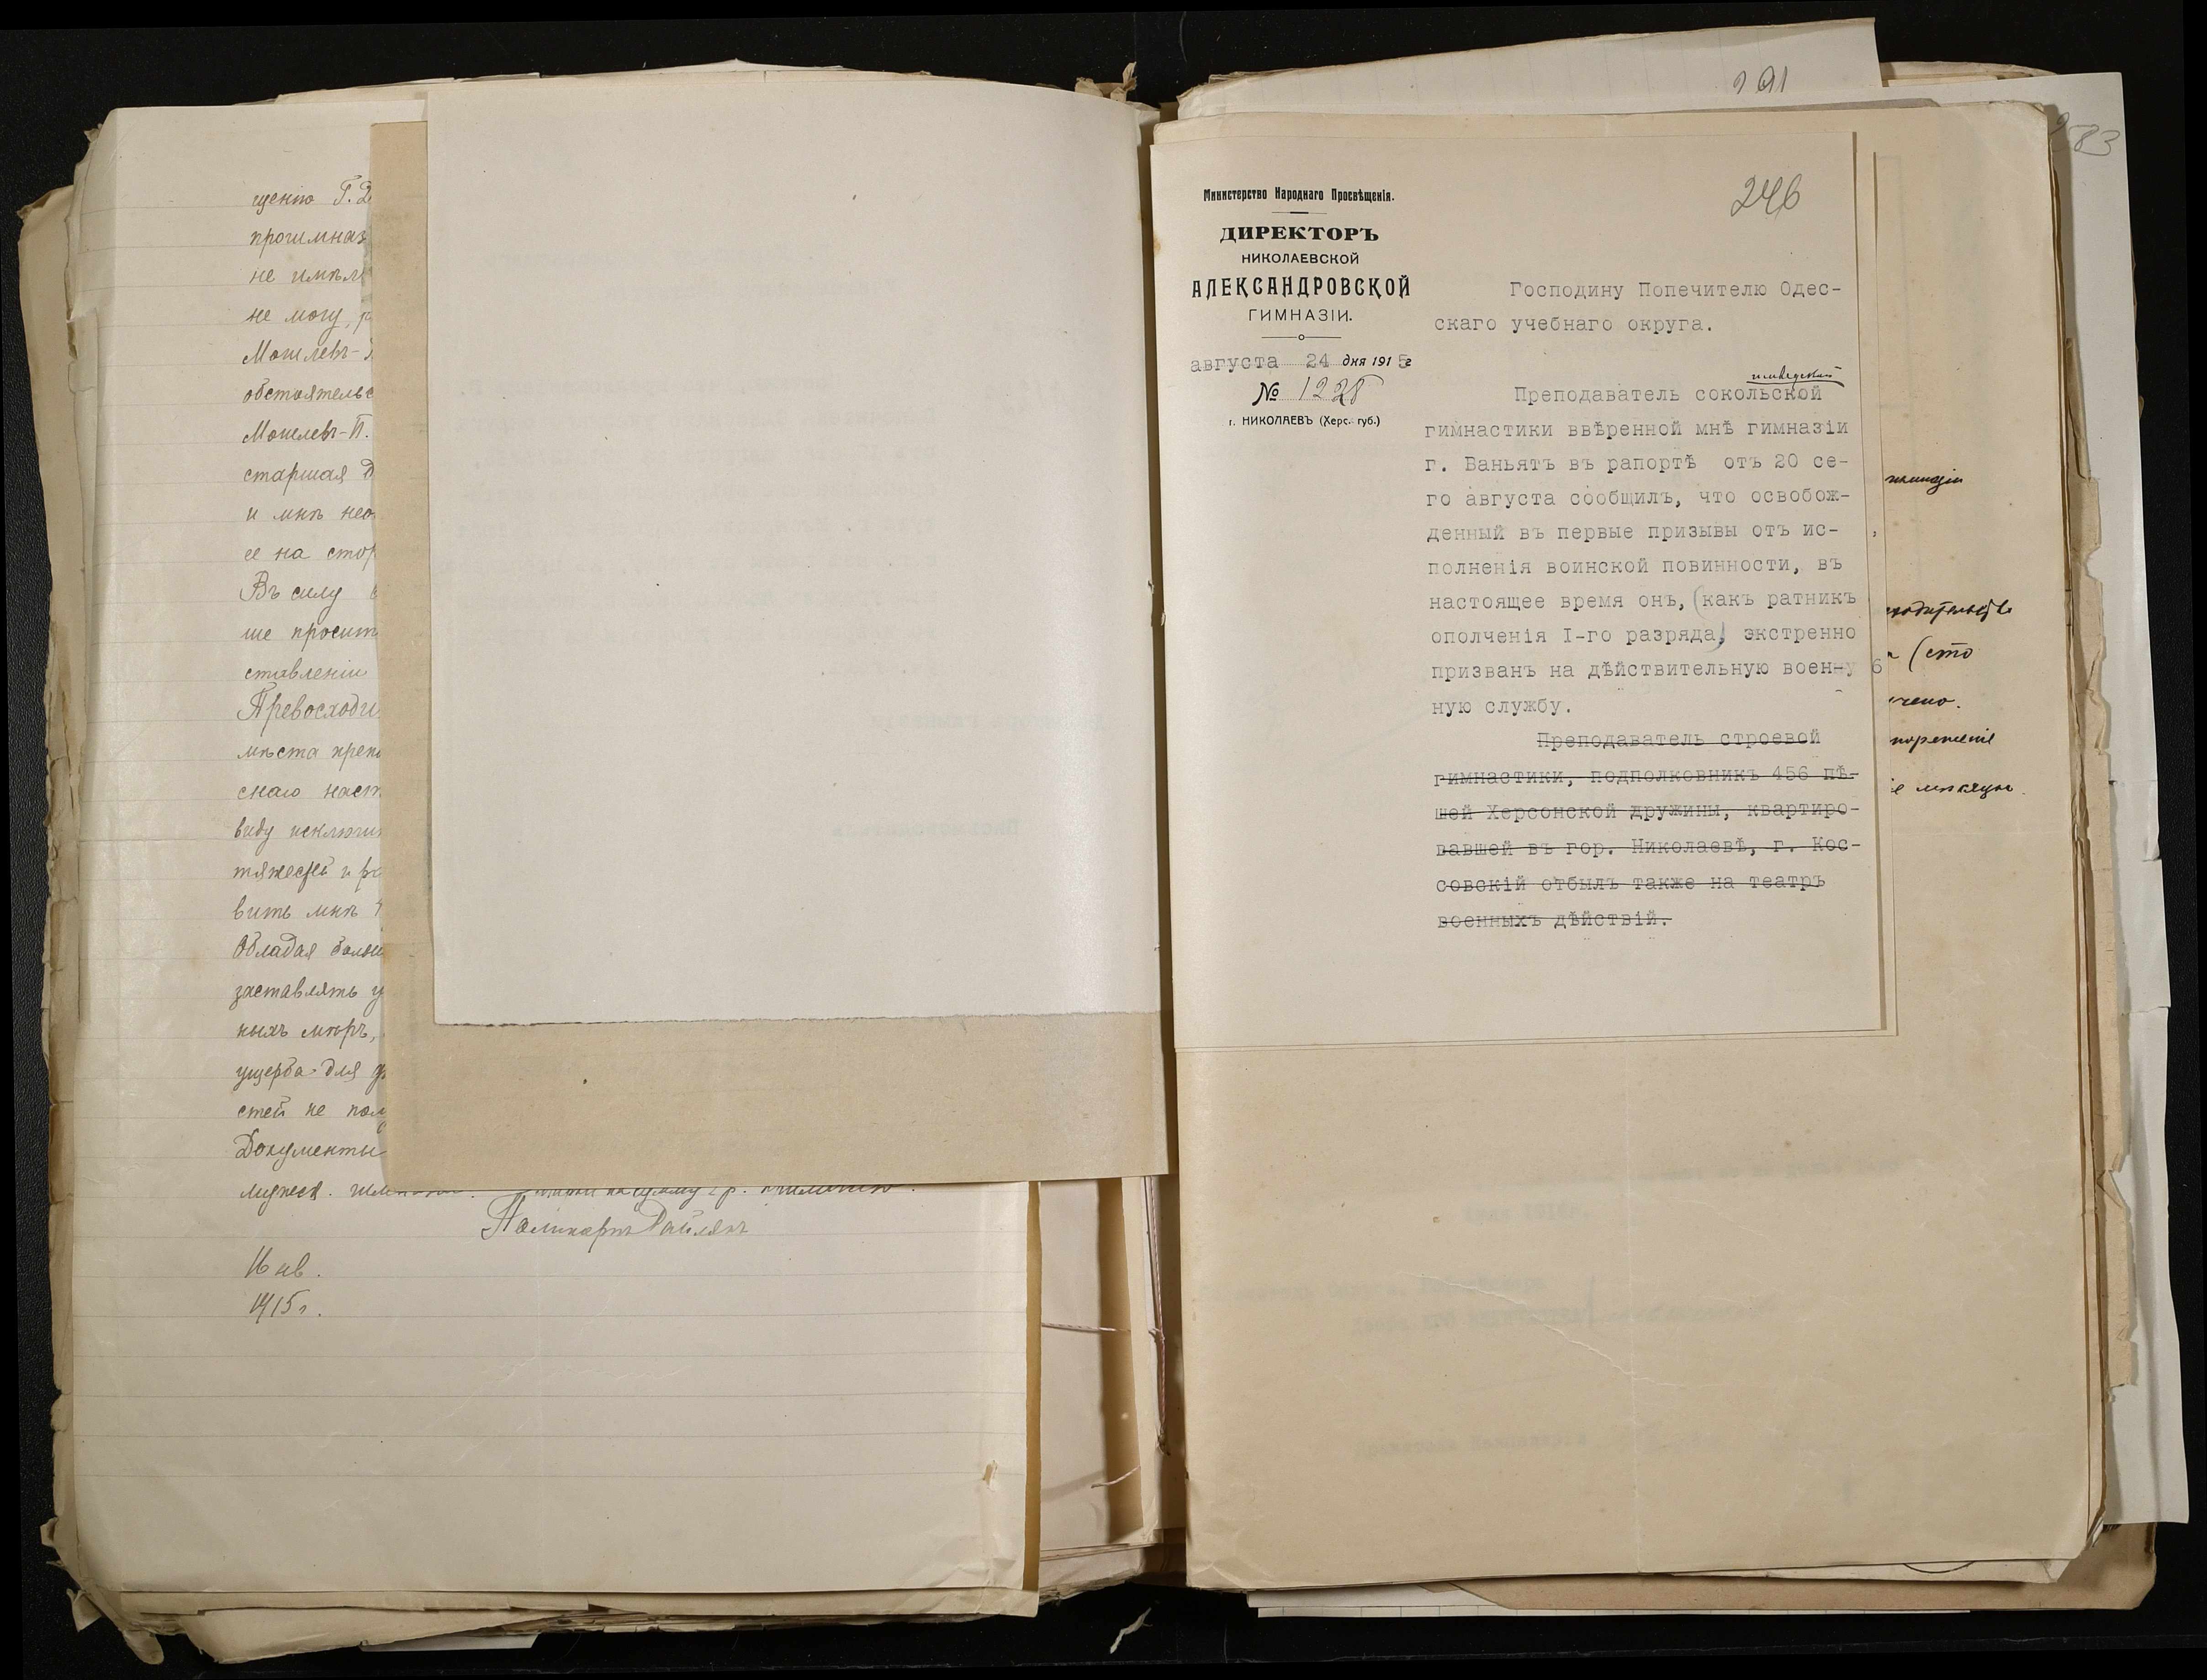 щенію Г. Д
прогимназ
не имѣл
не могу, р
Могилевъ-
обстоятельс
Могилевъ-П.
старшая д
и мнѣ нео
ее на стор
Въ силу
ше просит
ставленіи
Превосходи
мѣста преп
снаго наст
виду исключи
тяжестей и ра
вить мнѣ
Обладая больш
заставлять у
ныхъ мѣръ,
ущерба для
стей не пол
Документы
Поликарпъ
16 нв.
1915 г.
291
583
246
Министерство Народнаго Просвѣщенія.
ДИРЕКТОРЪ
НИКОЛАЕВСКОЙ
АЛЕКСАНДРОВСКОЙ
ГИМНАЗІИ.
августа 24 дня 1915 г
№ 1228
г. НИКОЛАЕВЪ (Херс. губ.)
Господину Попечителю Одес-
скаго учебнаго округа.
Преподаватель сокольской
гимнастики ввѣренной мнѣ гимназіи
г. Ваньятъ въ рапортѣ отъ 20 се-
го августа сообщилъ, что освобож-
денный въ первые призывы отъ ис-
полненія воинской повинности, въ
настоящее время онъ, (какъ ратникъ
ополченія I-го разряда) экстренно
призванъ на дѣйствительную воен-
ную службу.
Преподаватель строевой
гимнастики, подполковникъ 456 пѣ-
шей Херсонской дружины, квартиро-
вавшей въ гор. Николаевѣ, г. Кос-
совскій отбылъ также на театръ
военныхъ дѣйствій.
(сто
чено.